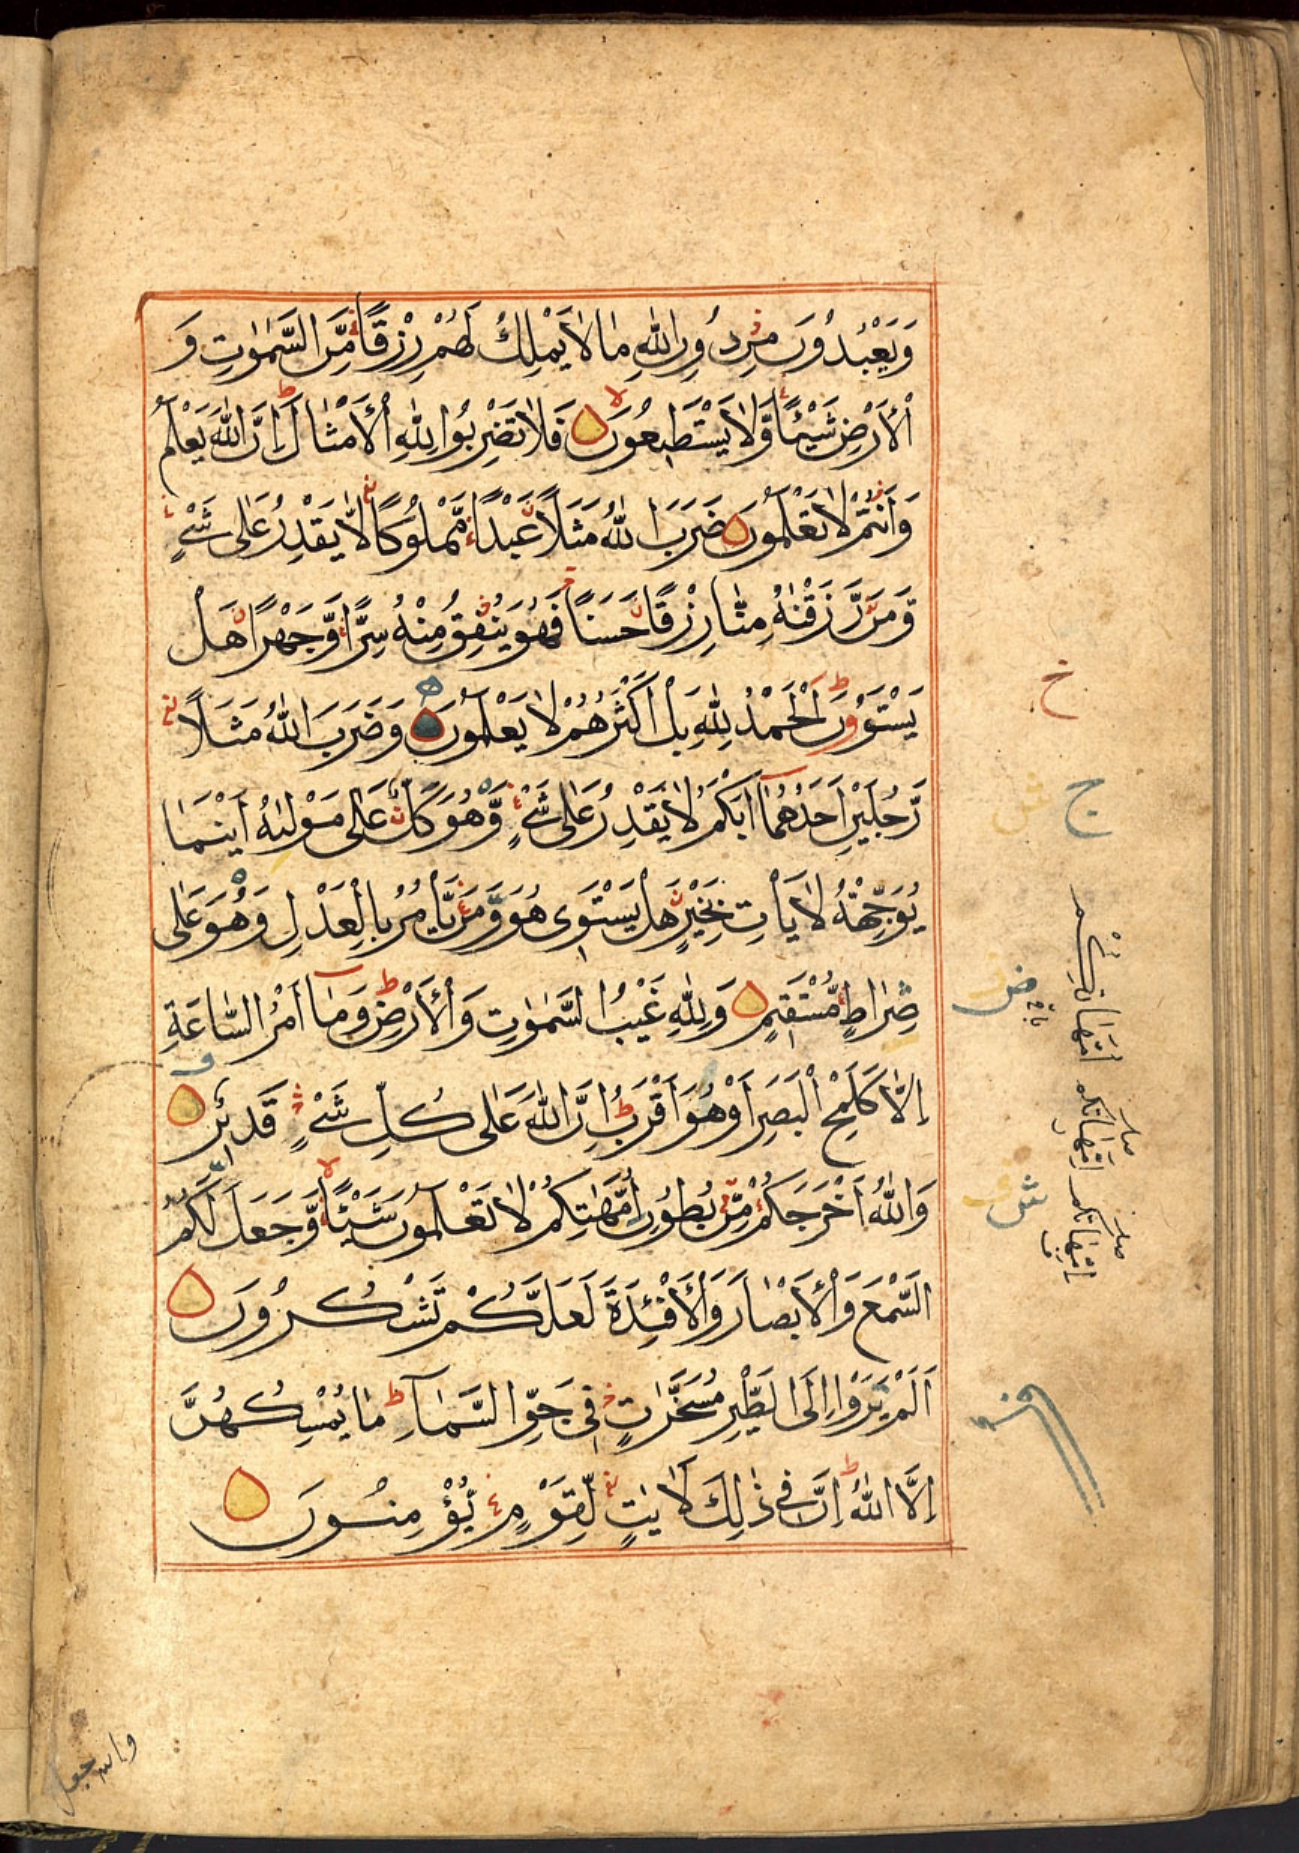 وَيَعْبُدُونَ مِنْ دُونِ اللّٰهِ مَا لَا يَمْلِكُ لَهُمْ رِزْقًا مِّنَ السَّمٰوٰتِ وَ
الْأَرْضِ شَيْئًا وَّلَا يَسْتَطِيعُونَ فَلَا تَضْرِبُوا لِلّٰهِ الْأَمْثَالَ إِنَّ اللّٰهَ يَعْلَمُ
وَأَنْتُمْ لَا تَعْلَمُونَ ضَرَبَ اللّٰهُ مَثَلًا عَبْدًا مَّمْلُوكًا لَّا يَقْدِرُ عَلٰى شَيْءٍ
وَّمَنْ رَّزَقْنٰهُ مِنَّا رِزْقًا حَسَنًا فَهُوَ يُنْفِقُ مِنْهُ سِرًّا وَّجَهْرًا هَلْ
يَسْتَوُونَ الْحَمْدُ لِلّٰهِ بَلْ أَكْثَرُهُمْ لَا يَعْلَمُونَ وَضَرَبَ اللّٰهُ مَثَلًا
رَّجُلَيْنِ أَحَدُهُمَا أَبْكَمُ لَا يَقْدِرُ عَلٰى شَيْءٍ وَّهُوَ كَلٌّ عَلٰى مَوْلٰىهُ أَيْنَمَا
يُوَجِّهْهُ لَا يَأْتِ بِخَيْرٍ هَلْ يَسْتَوِي هُوَ وَمَنْ يَّأْمُرُ بِالْعَدْلِ وَهُوَ عَلٰى
صِرَاطٍ مُّسْتَقِيمٍ وَلِلّٰهِ غَيْبُ السَّمٰوٰتِ وَالْأَرْضِ وَمَا أَمْرُ السَّاعَةِ
إِلَّا كَلَمْحِ الْبَصَرِ أَوْ هُوَ أَقْرَبُ إِنَّ اللّٰهَ عَلٰى كُلِّ شَيْءٍ قَدِيرٌ
وَاللّٰهُ أَخْرَجَكُمْ مِّنْ بُطُونِ أُمَّهٰتِكُمْ لَا تَعْلَمُونَ شَيْئًا وَّجَعَلَ لَكُمُ
السَّمْعَ وَالْأَبْصَارَ وَالْأَفْئِدَةَ لَعَلَّكُمْ تَشْكُرُونَ
أَلَمْ يَرَوْا إِلَى الطَّيْرِ مُسَخَّرٰتٍ فِي جَوِّ السَّمَاءِ مَا يُمْسِكُهُنَّ
إِلَّا اللّٰهُ إِنَّ فِي ذٰلِكَ لَاٰيٰتٍ لِّقَوْمٍ يُّؤْمِنُونَ
خ
ج
والله جعل